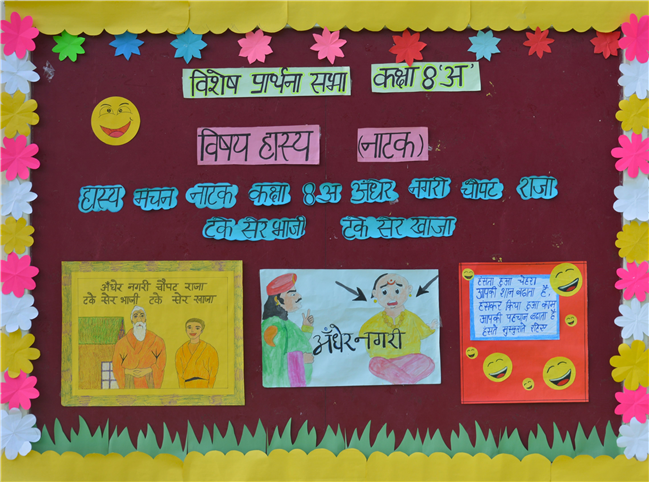 विशेष प्रार्थना सभा कक्षा 8 'अ'
विषय हास्य (नाटक)
हास्य मंचन नाटक कक्षा 8 अ अंधेर नगरी चौपट राजा
टके सेर भाजी टके सेर खाजा
अँधेर नगरी चौपट राजा
टके सेर भाजी टके सेर खाजा
अँधेर नगरी
हँसता हुआ चेहरा
आपकी शान बढ़ाता है,
हँसकर किया हुआ काम
आपकी पहचान बढ़ाता है
हँसते मुस्कुराते रहिए